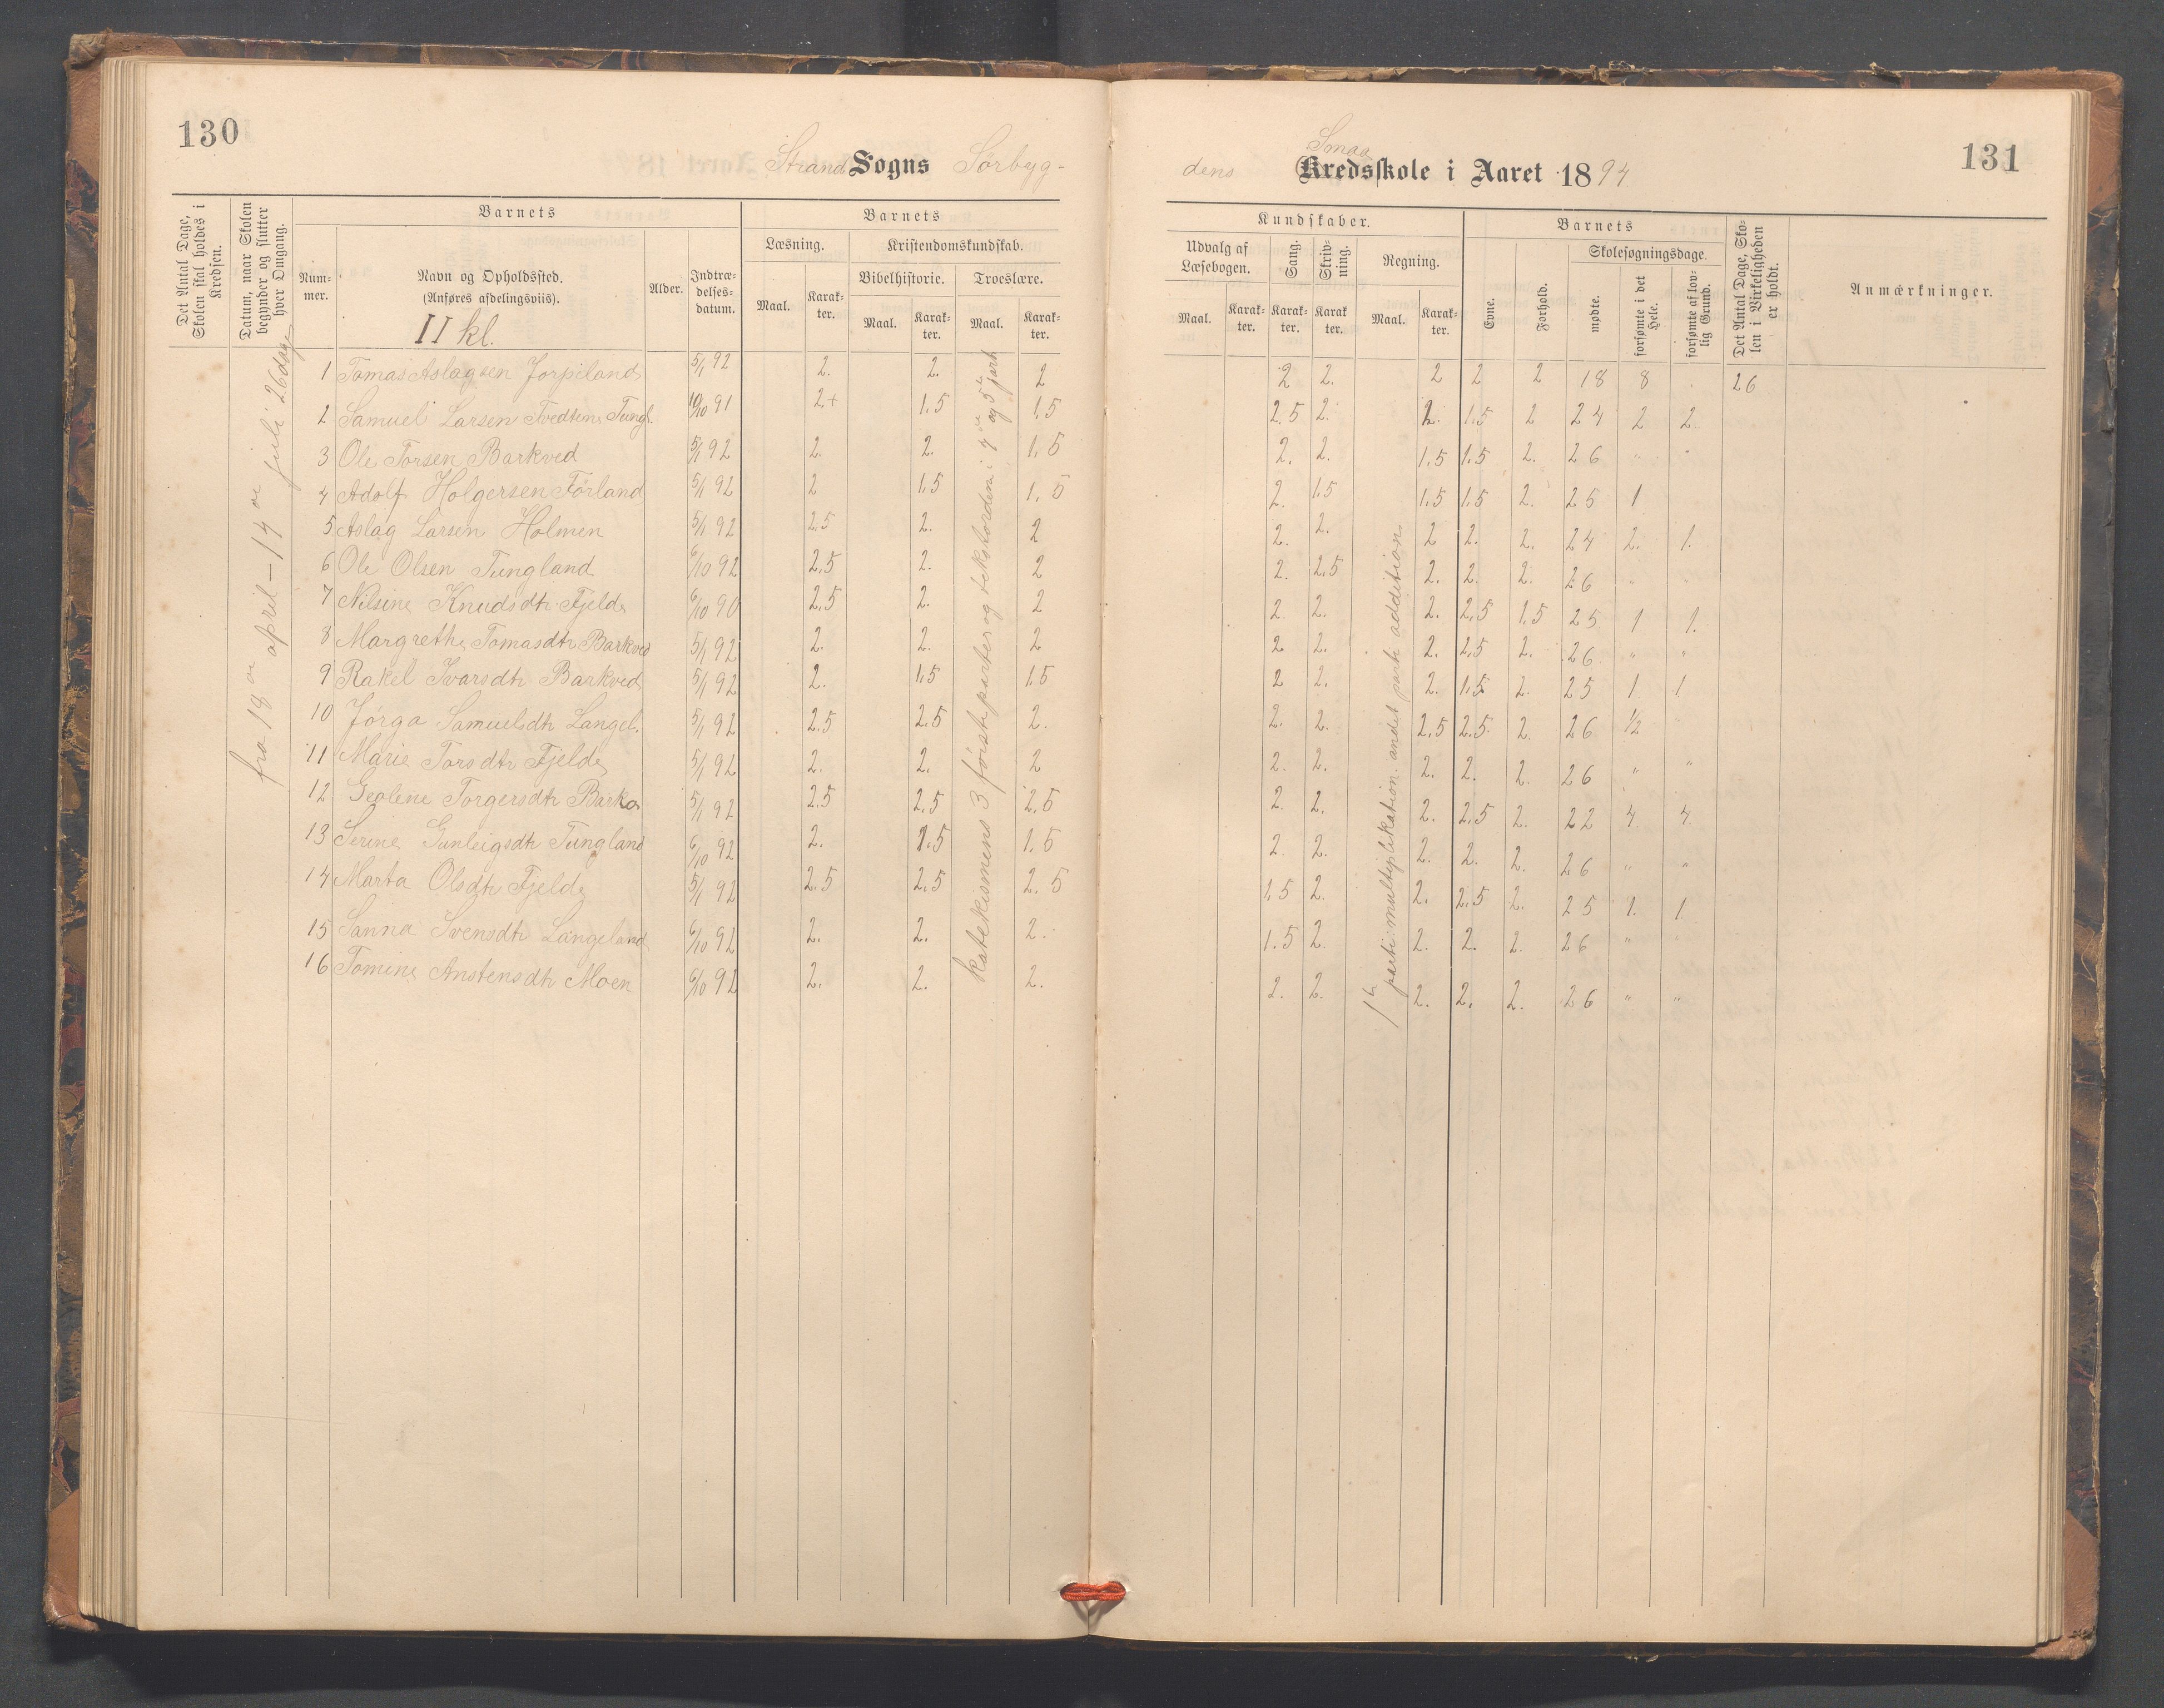 130
Strand Sogns Sörbyg-
Det Antal Dage, Skolen skal holdes i Kredsen.
Datum, naar Skolen begynder og slutter hver Omgang.
Barnets
Num- mer.
Navn og Opholdssted.
(Anføres afdelingsviis).
II kl.
Alder.
Indtræ- delses- datum.
Barnets
Læsning.
Maal.
Karak- ter.
Kristendomskundskab.
Bibelhistorie.
Maal.
Karak- ter.
Troeslære.
Maal.
Karak- ter.
fra 18 april - 14 juli 26 dage
katekismens 3 förste parter og tekstordene i 4 og 5 part
1 Tomas Aslagsen Jorpeland 5/1 92 2. 2. 2
2 Samuel Larsen Tvedten Tungl. 10/10 91 2+ 1.5 1.5
3 Ole Torsen Barkved 5/1 92 2. 2. 1.5
4 Adolf Holgersen Förland 5/1 92 2 1.5 1.5
5 Aslag Larsen Holmen 5/1 92 2.5 2. 2
6 Ole Olsen Tungland 6/10 92 2.5 2. 2
7 Nilsine Knudsdtr Fjelde 6/10 90 2.5 2. 2
8 Margrethe Tomasdtr Barkved 5/1 92 2. 2. 2
9 Rakel Ivarsdtr Barkved 5/1 92 2. 1.5 1.5
10 Jörga Samuelsdtr Langel. 5/1 92 2.5 2.5 2.
11 Marie Torsdtr Fjelde 5/1 92 2. 2. 2
12 Geoline Torgersdtr Bark. 5/1 92 2.5 2.5 2.5
13 Serine Gunleigsdtr Tungland 6/10 92 2. 1.5 1.5
14 Marta Olsdtr Fjelde 5/1 92 2.5 2.5 2.5
15 Sanna Svensdtr Langeland 6/10 92 2. 2. 2.
16 Tomine Anstensdtr Moen 6/10 92 2. 2. 2.
131
dens Smaa Kredsskole i Aaret 1894
Kundskaber.
Udvalg af Læsebogen.
Maal.
Karak- ter.
Sang.
Karak- ter.
Skriv- ning.
Karak ter.
Regning.
Maal.
Karak- ter.
Barnets
Evne.
Forhold.
Skolesøgningsdage.
mødte.
forsømte i det Hele.
forsømte af lov- lig Grund.
Det Antal Dage, Sko- len i Virkeligheden er holdt.
Anmærkninger.
parti: multiplikation. andet parti addition
2 2. 2 2 2 18 8 26
2.5 2. 2. 1.5 2 24 2 2
2. 2. 1.5 1.5 2. 26 "
2. 1.5 1.5 1.5 2. 25 1
2. 2. 2 2. 2. 24 2. 1.
2. 2.5 2. 2. 2. 26 " "
2. 2. 2. 2.5 1.5 25 1 1.
2 2. 2. 2.5 2. 26 " "
2 2. 2. 1.5 2. 25 1 1
2. 2. 2.5 2.5 2. 26 1/2
2. 2. 2. 2. 2. 26 " "
2. 2. 2. 2.5 2. 22 4 4.
2. 2. 2. 2. 2. 26 " "
1.5 2. 2. 2.5 2. 25 1. 1
1.5 2. 2. 2. 2. 26 "
2. 2. 2. 2. 2. 26 " "